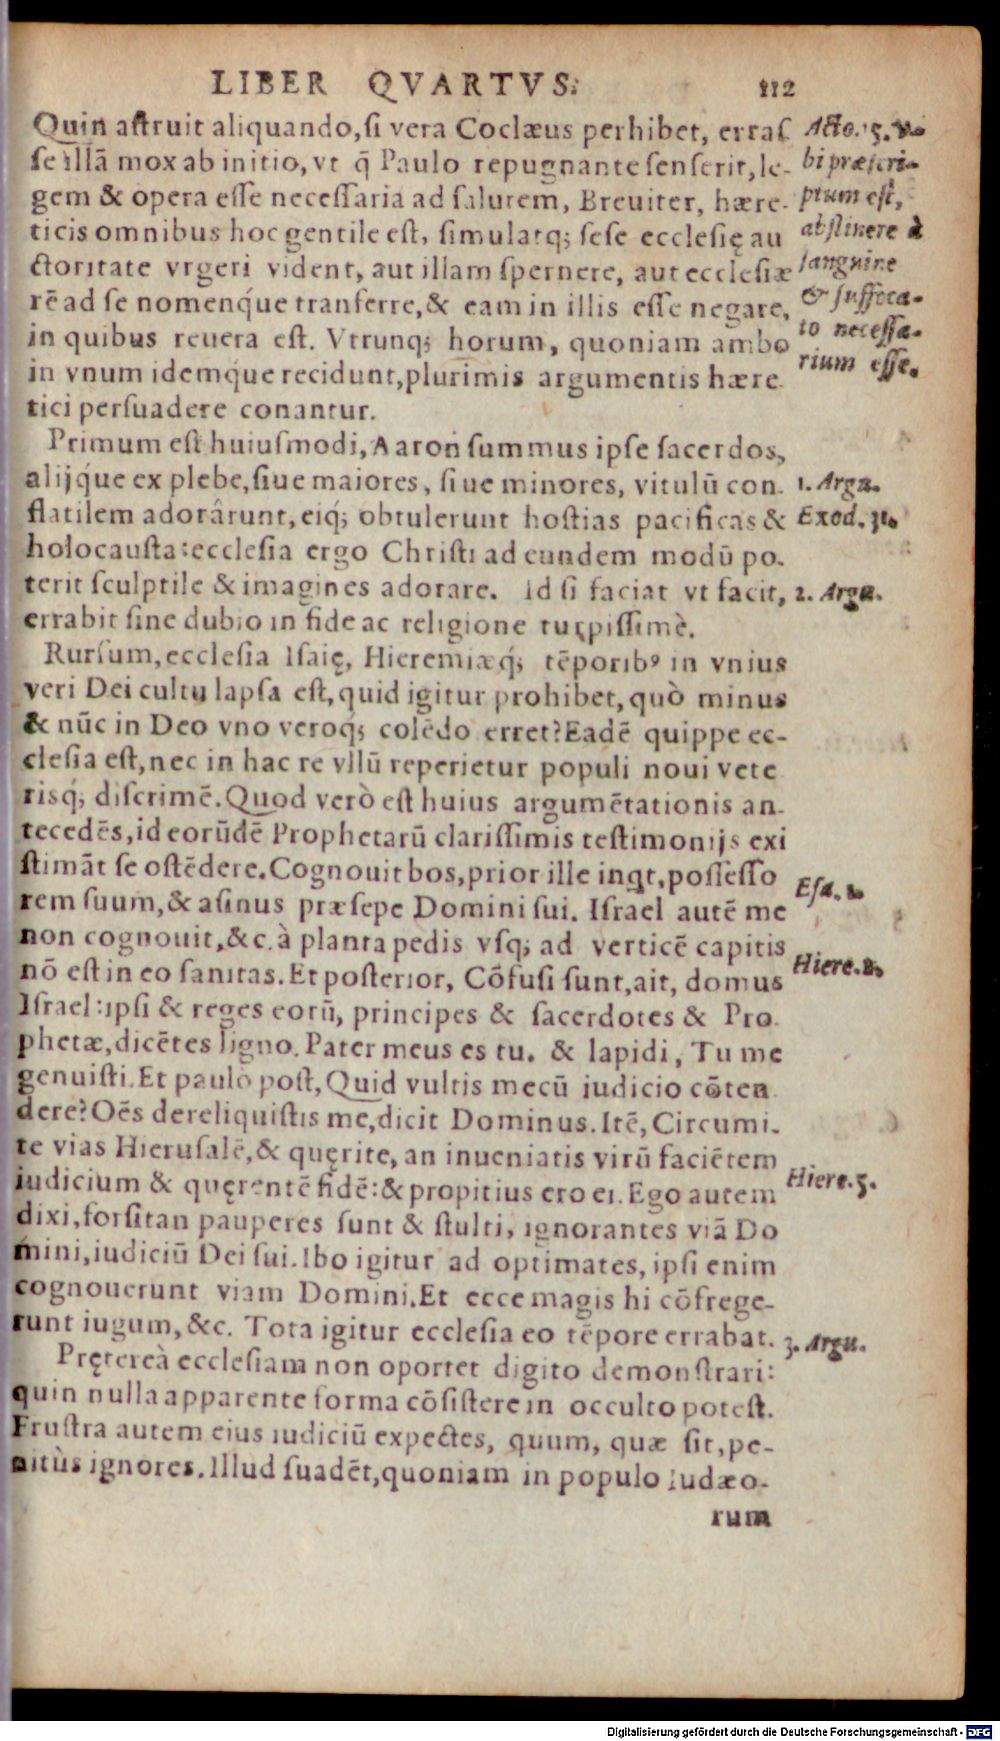 LIBER QVARTVS. 112
Quin astruit aliquando, si vera Coclæus perhibet, erras
se illã mox ab initio, vt q̃ Paulo repugnante senserit, le-
gem & opera esse necessaria ad salutem, Breuiter, hære-
ticis omnibus hoc gentile est, simulatq; sese ecclesię au
ctoritate vrgeri vident, aut illam spernere, aut ecclesiæ
rẽ ad se nomenq́ue tranferre, & eam in illis esse negare,
in quibus reuera est. Vtrunq; horum, quoniam ambo
in vnum idemq́ue recidunt, plurimis argumentis hære
tici persuadere conantur.
Acto. 15. v-
bi præscri-
ptum est,
abstinere à
sanguine
& suffoca-
to necessa-
rium esse.
Primum est huiusmodi, Aaron summus ipse sacerdos,
alijq́ue ex plebe, siue maiores, siue minores, vitulũ con-
flatilem adorârunt, eiq́; obtulerunt hostias pacificas &
holocausta: ecclesia ergo Christi ad eundem modũ po-
terit sculptile & imagines adorare. Id si faciat vt facit,
errabit sine dubio in fide ac religione turpissimè.
1. Argu.
Exod. 31.
2. Argu.
Rursum, ecclesia Isaię, Hieremiæq́; tẽporibꝰ in vnius
veri Dei cultu lapsa est, quid igitur prohibet, quò minus
& nũc in Deo vno veroq́; colẽdo erret? Eadẽ quippe ec-
clesia est, nec in hac re vllũ reperietur populi noui vete
risq́; discrimẽ. Quod verò est huius argumẽtationis an-
tecedẽs, id eorũdẽ Prophetarũ clarissimis testimonijs exi
stimãt se ostẽdere. Cognouit bos, prior ille inqt, possesso
rem suum, & asinus præsepe Domini sui. Israel autẽ me
non cognouit, &c. à planta pedis vsq; ad verticẽ capitis
nõ est in eo sanitas. Et posterior, Cõfusi sunt, ait, domus
Israel: ipsi & reges eorũ, principes & sacerdotes & Pro-
phetæ, dicẽtes ligno. Pater meus es tu. & lapidi, Tu me
genuisti. Et paulò post, Quid vultis mecũ iudicio cõten
dere? Oẽs dereliquistis me, dicit Dominus. Itẽ, Circumi-
te vias Hierusalẽ, & quęrite, an inueniatis virũ faciẽtem
iudicium & quęrentẽ fidẽ: & propitius ero ei. Ego autem
dixi, forsitan pauperes sunt & stulti, ignorantes viã Do
mini, iudiciũ Dei sui. Ibo igitur ad optimates, ipsi enim
cognouerunt viam Domini. Et ecce magis hi cõfrege-
runt iugum, &c. Tota igitur ecclesia eo tẽpore errabat.
Esa. 1.
Hiere. 2.
Hiere. 5.
3. Argu.
Prętereà ecclesiam non oportet digito demonstrari:
quin nulla apparente forma cõsistere in occulto potest.
Frustra autem eius iudiciũ expectes, quum, quæ sit, pe-
nitùs ignores. Illud suadẽt, quoniam in populo Iudæo-
rum
Digitalisierung gefördert durch die Deutsche Forschungsgemeinschaft - DFG